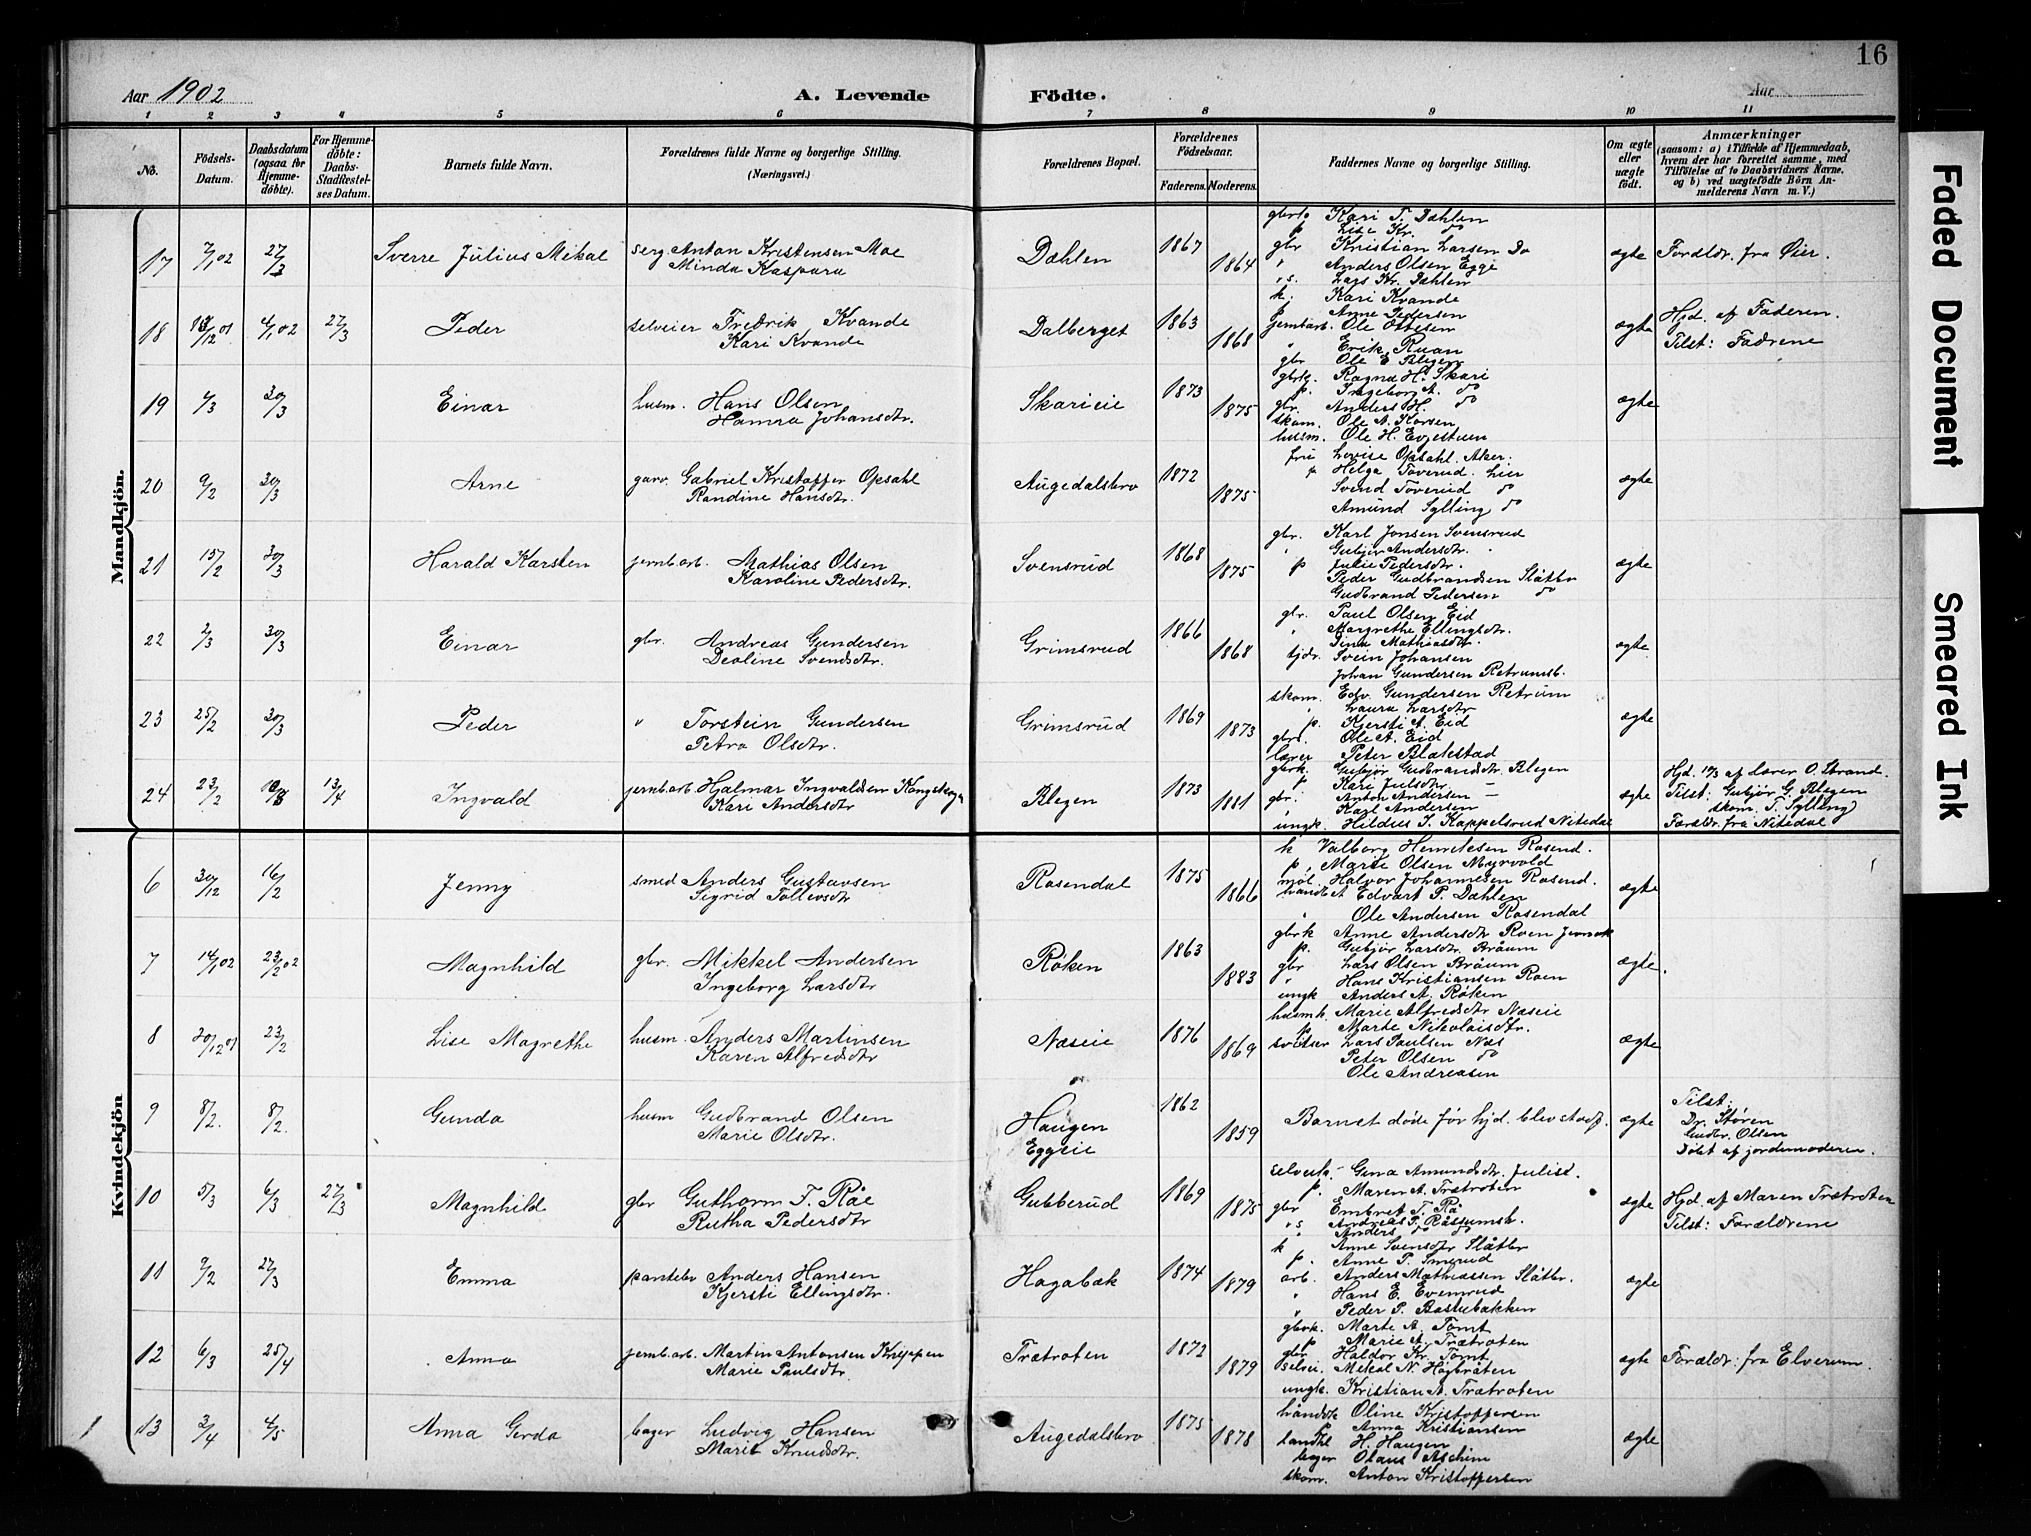 16
Aar 1902
A. Levende Födte.
Aar
1 2 3 4 5 6 7 8 9 10 11
No.
Födsels-Datum.
Daabsdatum (ogsaa for Hjemme-döbte).
For Hjemme-döbte: Daabs-Stadfæstel-ses Datum.
Barnets fulde Navn.
Forældrenes fulde Navne og borgerlige Stilling.
(Næringsvei.)
Forældrenes Bopæl.
Forældrenes Födselsaar.
Faderens. Moderens.
Faddernes Navne og borgerlige Stilling.
Om ægte eller uægte födt.
Anmærkninger
(saasom: a) i Tilfælde af Hjemmedaab, hvem der har forrettet samme, med Tilföielse af to Daabsvidners Navne, og b) ved uægtefödte Börn An-melderens Navn m. V.)
Mandkjön.
17 7/1 02 27/3 Sverre Julius Mikal
serg. Anton Kristensen Moe
Minda Kaspara
Dæhlen 1867 1864
gbrk. Kari T. Dæhlen
p Lise Kr. do
gbr Kristian Larsen Do
" Anders Olsen Egge
" s. Lars Kr. Dæhlen
ægte Foreldr. fra Øier.
18 /12 01 4/1 02 27/3 Peder
selveier Fredrik Kvande
Kari Kvande
Dalberget 1863 1868
k. Kari Kvande
p Anne Pedersen
jernb.arb. Ole Ottesen
" Erik Ruan
gbr Ole E Blegen
ægte Hjd. af Faderen.
Tilst: Fadrene
19 4/3 30/3 Einar
husm. Hans Olsen
Hanna Johansdtr.
Skarieie 1873 1875
gbrk. Ragna H. Skari
p. Ingeborg A. do
gbr. Anders H. do
skom. Ole A. Korsen
husm. Ole H. Evjestuen
ægte
20 9/2 30/3 Arne
garv. Gabriel Kristoffer Opsahl
Randine Hansdtr.
Augedalsbro 1872 1875
fru Lovise Opsahl. Aker.
p Helga Toverud. Lier
Svend Toverud do
Amund Sylling do
ægte
21 15/2 30/3 Harald Karsten
jernb.arb. Mathias Olsen
Karoline Pedersdtr.
Svensrud 1868 1875
gbr. Karl Jonsen Svensrud
" Gubjør Andersdtr.
p Julie Pedersdtr.
Peder Gudbrandsen Slåtbr
Gudbrand Pedersen do
ægte
22 2/3 30/3 Einar
gbr. Andreas Gundersen
Deoline Svendsdtr.
Grimsrud 1866 1868
gbr. Paul Olsen Eid
" Margrethe Ellingsdtr.
Tina Mathiasdtr.
tjdr. Svein Johansen
Johan Gundersen Retrumsb.
ægte
23 25/2 30/3 Peder
" Torstein Gundersen
Petra Olsdtr.
Grimsrud 1869 1873
skom. Edv. Gundersen Retrum
" Laura Larsdtr
p. Kjersti A. Eid
gbrs. Ole A. Eid
lærer Peter Blakstad
ægte
24 23/2 13/4 Ingvald
jernb.arb Hjalmar Ingvaldsen Kongskogen
Kari Andersdtr
Blegen 1873 1881
gbrk. Gubjør Gudbrandsdtr. Blegen
p Kari Julsdtr —
gbr. Anton Andersen —
" Karl Andersen
ungk. Hildus J. Kappelsrud Nitedal
ægte Hjd. 10/3 af Lærer O. Strand.
Tilst: Gubjør G. Blegen
skom. T. Sylling
Foreldr. fra Nitedal
Kvindekjön
6 30/12 16/2 Jenny
smed Anders Gustavsen
Sigrid Tollevsdtr
Rosendal 1875 1866
k Valborg Henriksen Rosend.
p. Marie Olsen Myrvold
møl. Halvor Johannesen Rosend.
Edvart P. Dæhlen
" Ole Andersen Rosendal
ægte
7 14/1 02 23/2 02 Magnhild
gbr. Mikkel Andersen
Ingeborg Larsdtr
Røken 1863 1883
gbrk Anne Andersdtr Roen
p. Gubjør Larsdtr Bråum
gbr Lars Olsen Bråum
" Hans Kristiansen Roen
ungk Anders A. Røken
ægte.
8 20/12 01 23/2 Lise Magrethe
husm. Anders Martinsen
Karen Alfredsdtr
Næseie 1876 1869
husmk. Marie Alfredsdtr Næseie
p Marte Nikolaisdtr.
sveitser Lars Paulsen Næs
Peter Olsen do
Ole Andreasen
ægte
9 8/2. 8/2. Gunda
husm Gudbrand Olsen
Marie Olsdtr.
Haugen
Eggeie 1862 1859
Barnet døde før hjd. blev stadf.
ægte Tilst:
Dr. Støren
Gudbr. Olsen
Døbt af jordemoderen.
10 5/3 6/3 27/3 Magnhild
gbr Guthorm T. Råe
Rutha Pedersdtr
Gubberud 1869 1875
selveierk. Gina Amundsdtr. Julist.
p. Maren A. Trætroten
gbr Embret T. Rå
" s Andreas P. Råstumsh.
" Anders do do
ægte Hjd. af Maren Trætroten
Tilst: Forældrene
11 9/2 27/3 Emma
pantelev Anders Hansen
Kjersti Ellingsdtr.
Hagabæk 1874 1879
k Anne Svensdtr Slåtbr
p. Anne P. Smerud
arb. Anders Mathiassen Slåtbr.
" Hans E. Evenrud
" Peder P. Bastubakken
ægte
12 6/3 25/4 Anna
jernb.arb. Martin Antonsen Knippen
Marie Paulsdtr.
Trætroten 1872 1879
gbrk. Marte A. Tomt
p Marie A. Trætroten
gbr Haldor Kr. Tomt
selvei. Mikal N. Høgbråten
ungk. Kristian A. Trætroten
ægte Forældr: fra Elverum.
13 3/4 4/5 Anna Gerda
bager Ludvig Hansen
Marit Knudsdtr.
Augedalsbro 1875 1878
håndk Oline Kristoffersen
" Anna Kristiansen
landh H. Haugen
bager Olaus Aschim
skom. Anton Kristoffersen
ægte
Faded Document
Smeared Ink